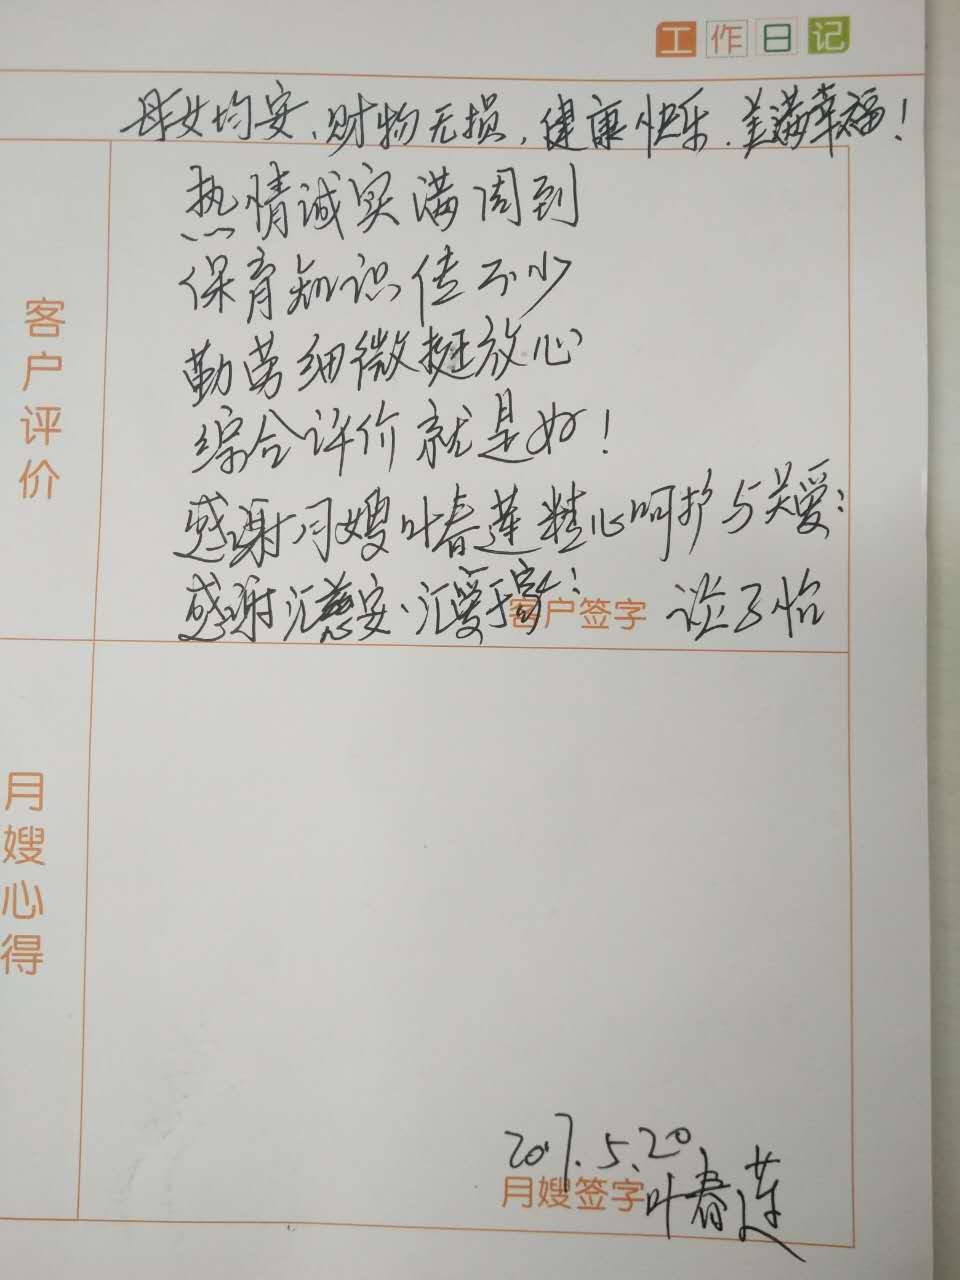 工作日记
母女均安、财物无损，健康快乐，美满幸福！
客户评价
热情诚实满周到
保育知识传不少
勤劳细微挺放心
综合评价就是好！
感谢月嫂叶春莲精心呵护与关爱！
感谢汇慈安·汇爱于家！
客户签字 谈子怡
月嫂心得
2017.5.20
月嫂签字 叶春莲